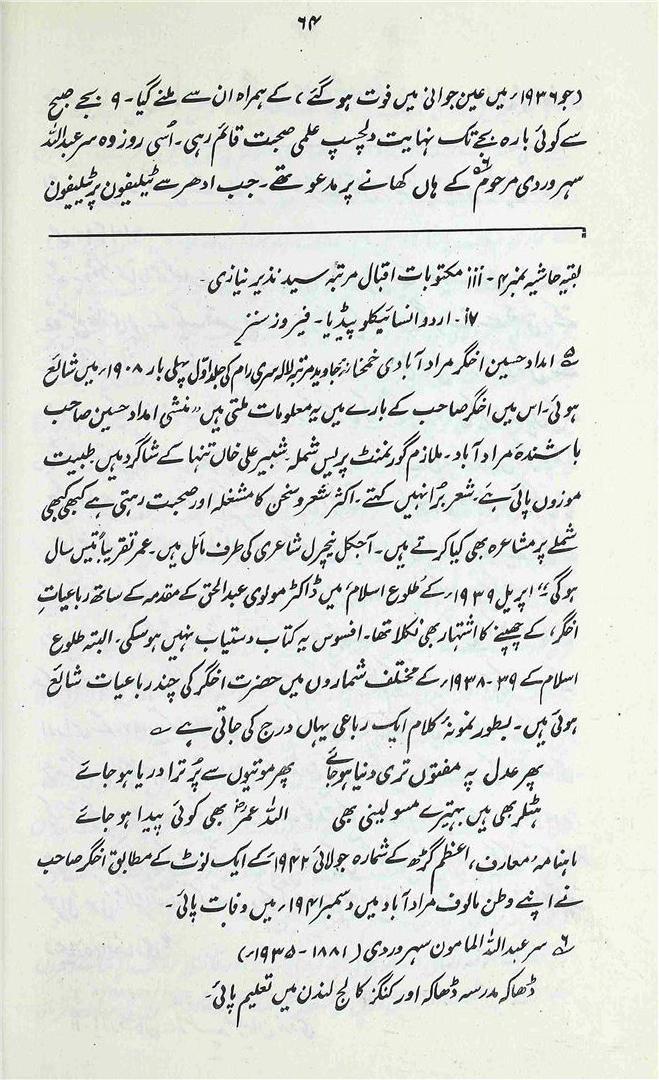 ۶۴
(جو ۱۹۳۶ء میں عین جوانی میں فوت ہو گئے) کے ہمراہ ان سے ملنے گیا۔ ۹ بجے صبح
سے کوئی بارہ بجے تک نہایت دلچسپ علمی صحبت قائم رہی۔ اُسی روز وہ سر عبداللہ
سہروردی مرحوم۶ کے ہاں کھانے پر مدعو تھے۔ جب ادھر سے ٹیلیفون پر ٹیلیفون
بقیہ حاشیہ نمبر ۴۔ iii مکتوبات اقبال مرتبہ سید نذیر نیازی۔
iv۔ اردو انسائیکلوپیڈیا۔ فیروز سنز
۵ امداد حسین اخگر مراد آبادی خمخانۂ جاوید مرتبہ لالہ سری رام کی جلد اوّل پہلی بار ۱۹۰۸ء میں شائع
ہوئی۔ اس میں اخگر صاحب کے بارے میں یہ معلومات ملتی ہیں "منشی امداد حسین صاحب
باشندہ مراد آباد۔ ملازم گورنمنٹ پریس شملہ شبیر علی خاں تنہا کے شاگرد ہیں طبیعت
موزوں پائی ہے۔ شعر بُرا نہیں کہتے۔ اکثر شعر و سخن کا مشغلہ اور صحبت رہتی ہے کبھی کبھی
شملے پر مشاعرہ بھی کیا کرتے ہیں۔ آجکل نیچرل شاعری کی طرف مائل ہیں۔ عمر تقریباً تیس سال
ہوگی" اپریل ۱۹۳۹ء کے طلوع اسلام میں ڈاکٹر مولوی عبدالحق کے مقدمہ کے ساتھ رباعیاتِ
اخگر، کے چھپنے کا اشتہار بھی نکلا تھا۔ افسوس یہ کتاب دستیاب نہیں ہوسکی۔ البتہ طلوع
اسلام کے ۳۹-۱۹۳۸ء کے مختلف شماروں میں حضرت اخگر کی چند رباعیات شائع
ہوئی ہیں۔ بطور نمونۂ کلام ایک رباعی یہاں درج کی جاتی ہے ؎
پھر عدل پہ مفتوں تری دنیا ہو جائے پھر موتیوں سے پُر ترا دریا ہو جائے
ہٹلر بھی ہیں بہتیرے مسولینی بھی اللہ عمرؓ بھی کوئی پیدا ہو جائے
ماہنامہ معارف، اعظم گڑھ کے شمارہ جولائی ۱۹۴۲ء کے ایک نوٹ کے مطابق اخگر صاحب
نے اپنے وطن مالوف مراد آباد میں دسمبر ۱۹۴۱ء میں وفات پائی۔
۶ سر عبداللہ المامون سہروردی (۱۸۸۱ - ۱۹۳۵ء)
ڈھاکہ مدرسہ ڈھاکہ اور کنگز کالج لندن میں تعلیم پائی۔